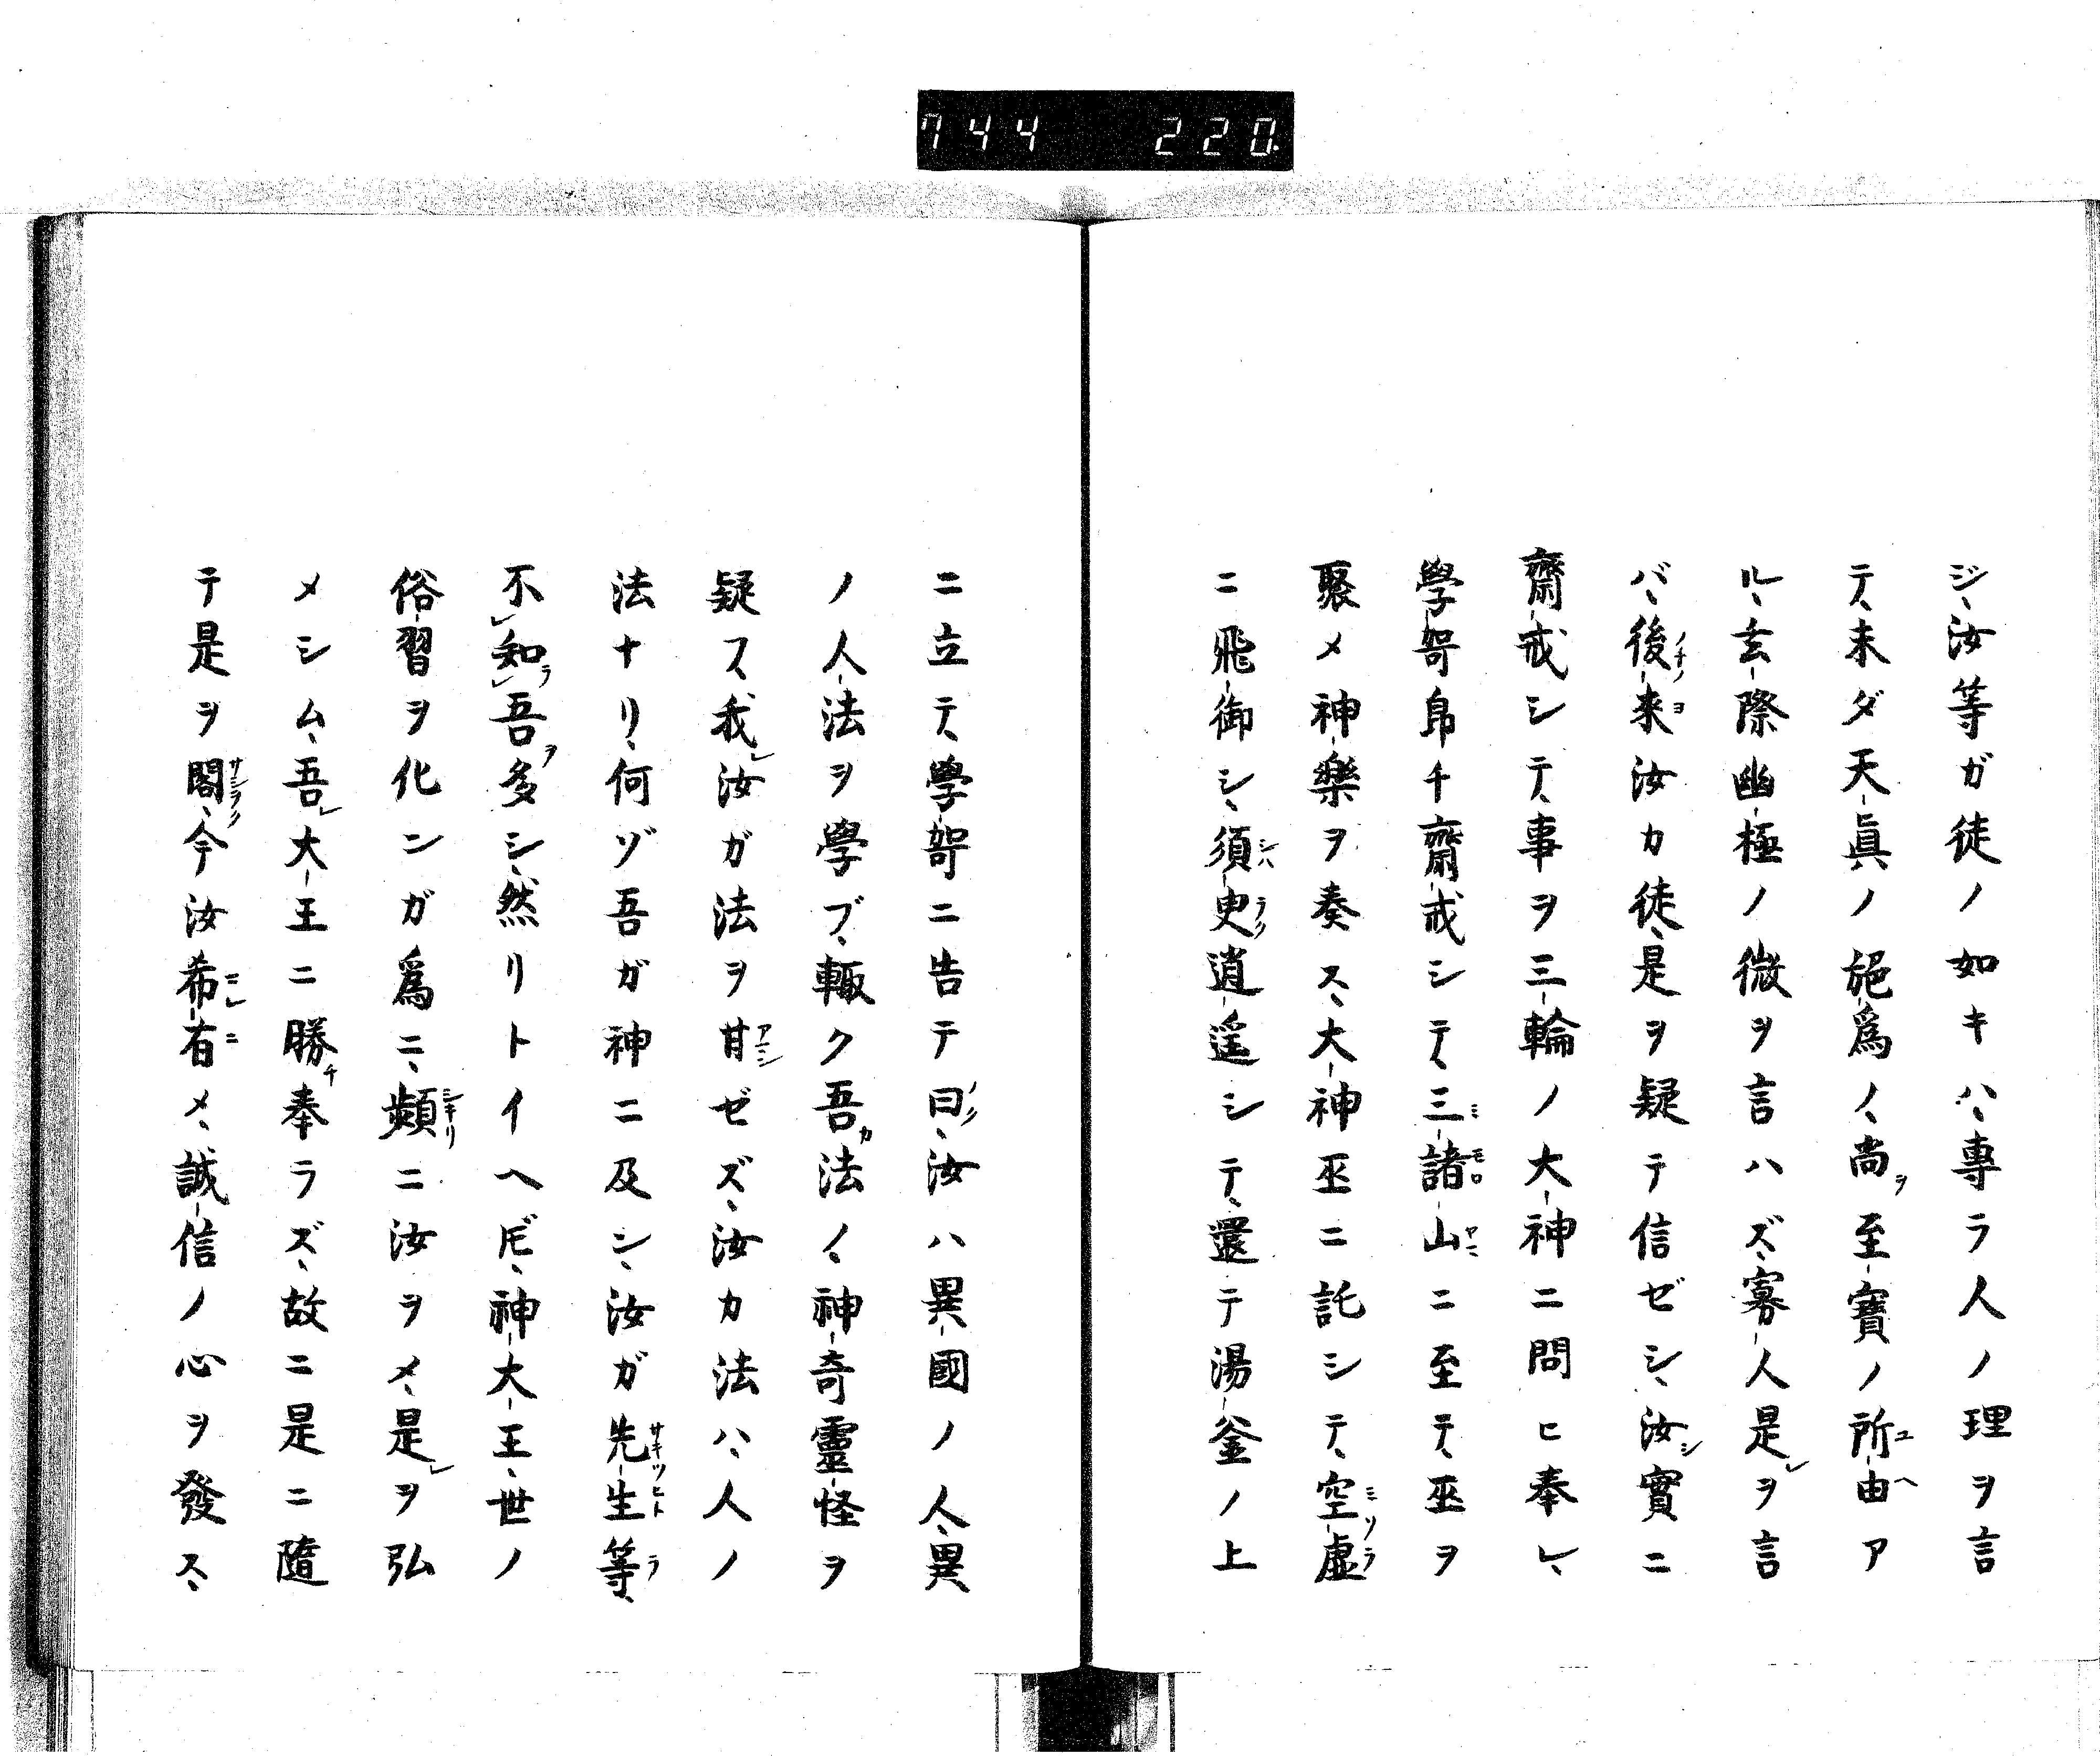 744 220
ジ、汝等ガ徒ノ如キハ、專ラ人ノ理ヲ言
テ、未ダ天眞ノ施爲ノ、尚ヲ至寶ノ所由ユヘア
ル、玄際幽極ノ微ヲ言ハズ、寡人是レヲ言
バ、後來ノチノヨ汝カ徒、是ヲ疑テ信ゼシ、汝シ實ニ
齋戒シテ、事ヲ三輪ノ大神ニ問ヒ奉レ、
學哿帛チ齋戒シテ、三諸山ミモロヤマニ至テ、巫ヲ
聚メ神樂ヲ奏ス、大神巫ニ託シテ、空虛ミソラ
ニ飛御シ、須臾シハラク逍遥シテ、還テ湯釜ノ上
ニ立テ、學哿ニ告テ曰ノク、汝ハ異國ノ人、異
ノ人法ヲ學ブ、輙ク吾カ法ノ、神奇靈怪ヲ
疑ス、我レ汝ガ法ヲ甘アマシゼズ、汝カ法ハ、人ノ
法ナリ、何ゾ吾ガ神ニ及シ、汝ガ先生等サキツヒトラ、
不レ知ラレ吾ヲ多シ、然リトイヘ𪜈、神大王、世ノ
俗習ヲ化ンガ爲ニ、頻シキリニ汝ヲメ、是レヲ弘
メシム、吾レ大王ニ勝チ奉ラズ、故ニ是ニ隨
テ是ヲ閣サシヲク、今汝希有マレニメ、誠信ノ心ヲ發ス、